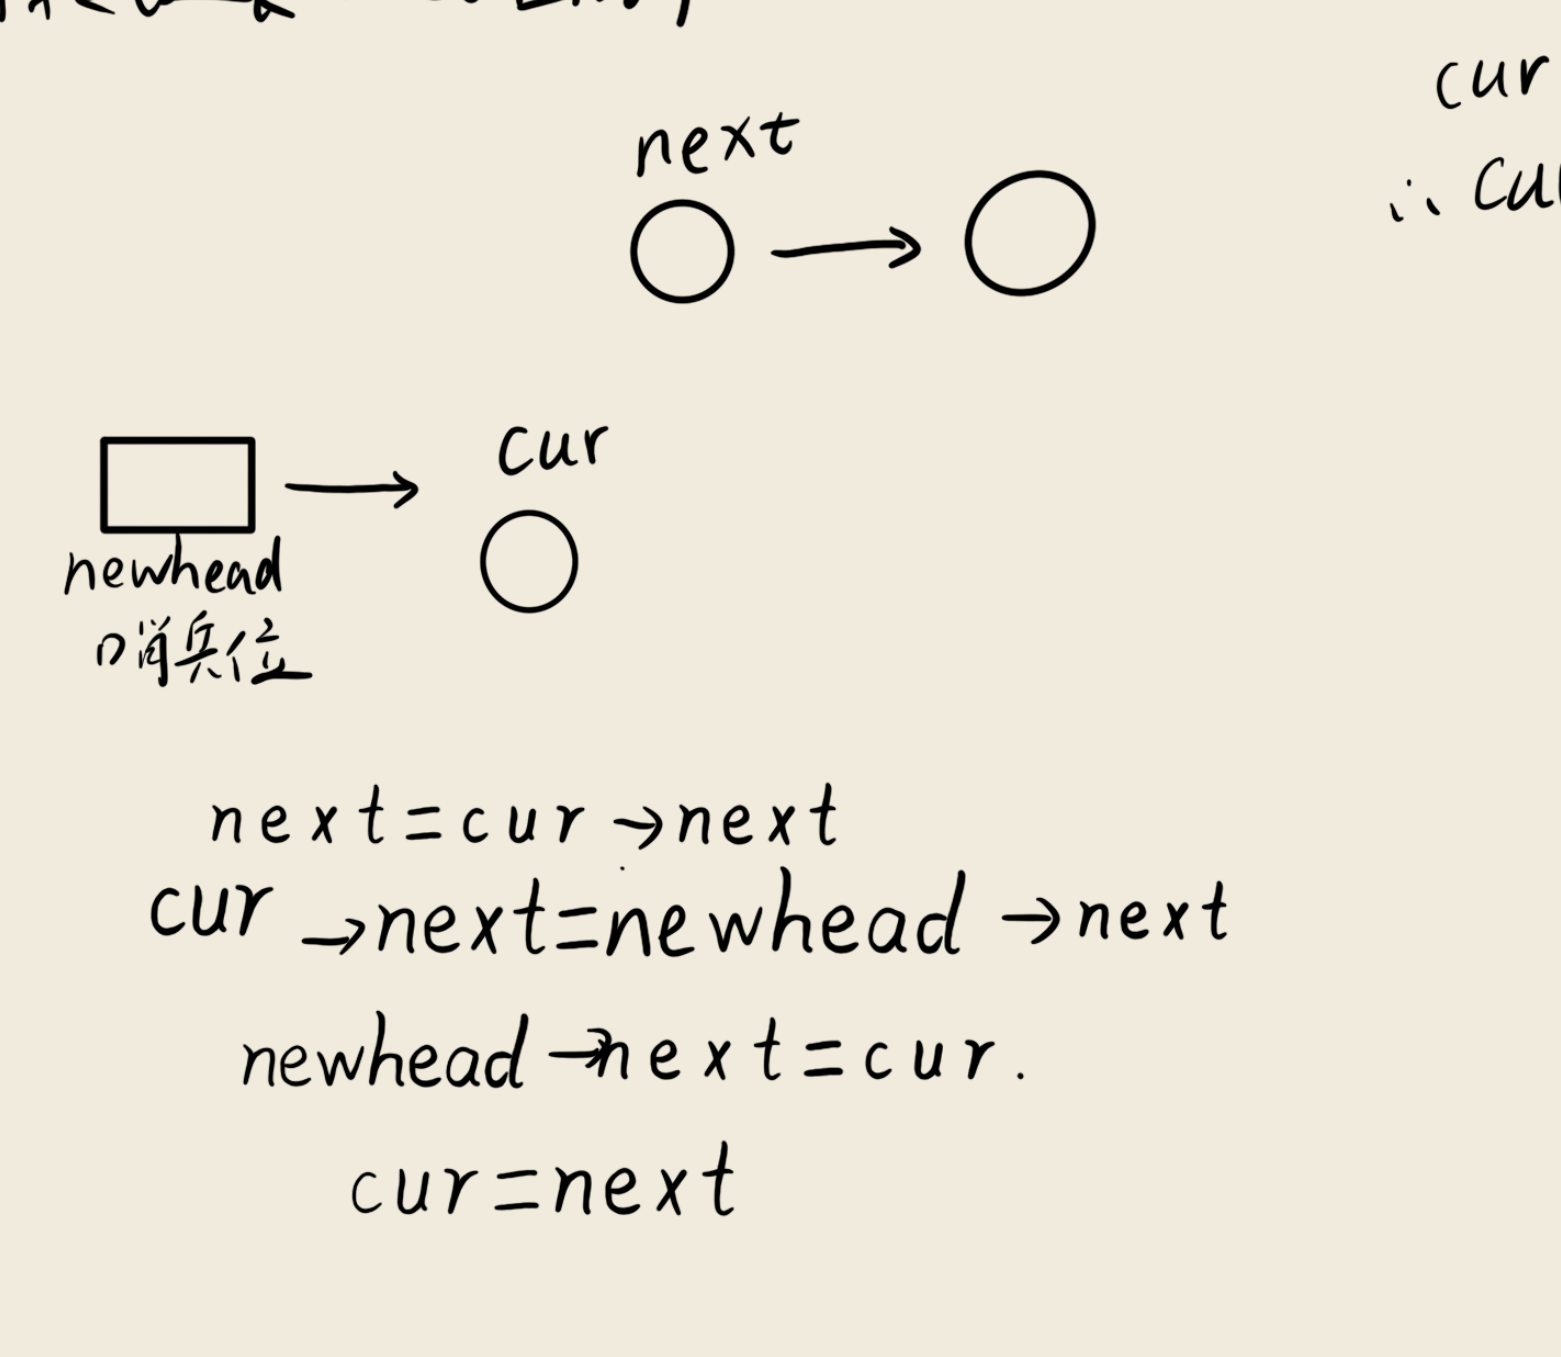 cur
next
∴
cur
newhead
哨兵位
next=cur→next
cur→next=newhead→next
newhead→next=cur.
cur=next